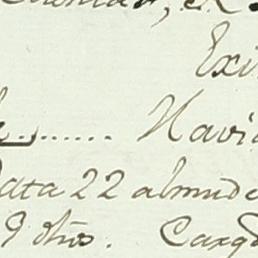 Exi
Navi
Data 22 almude
9 dhos. Carg